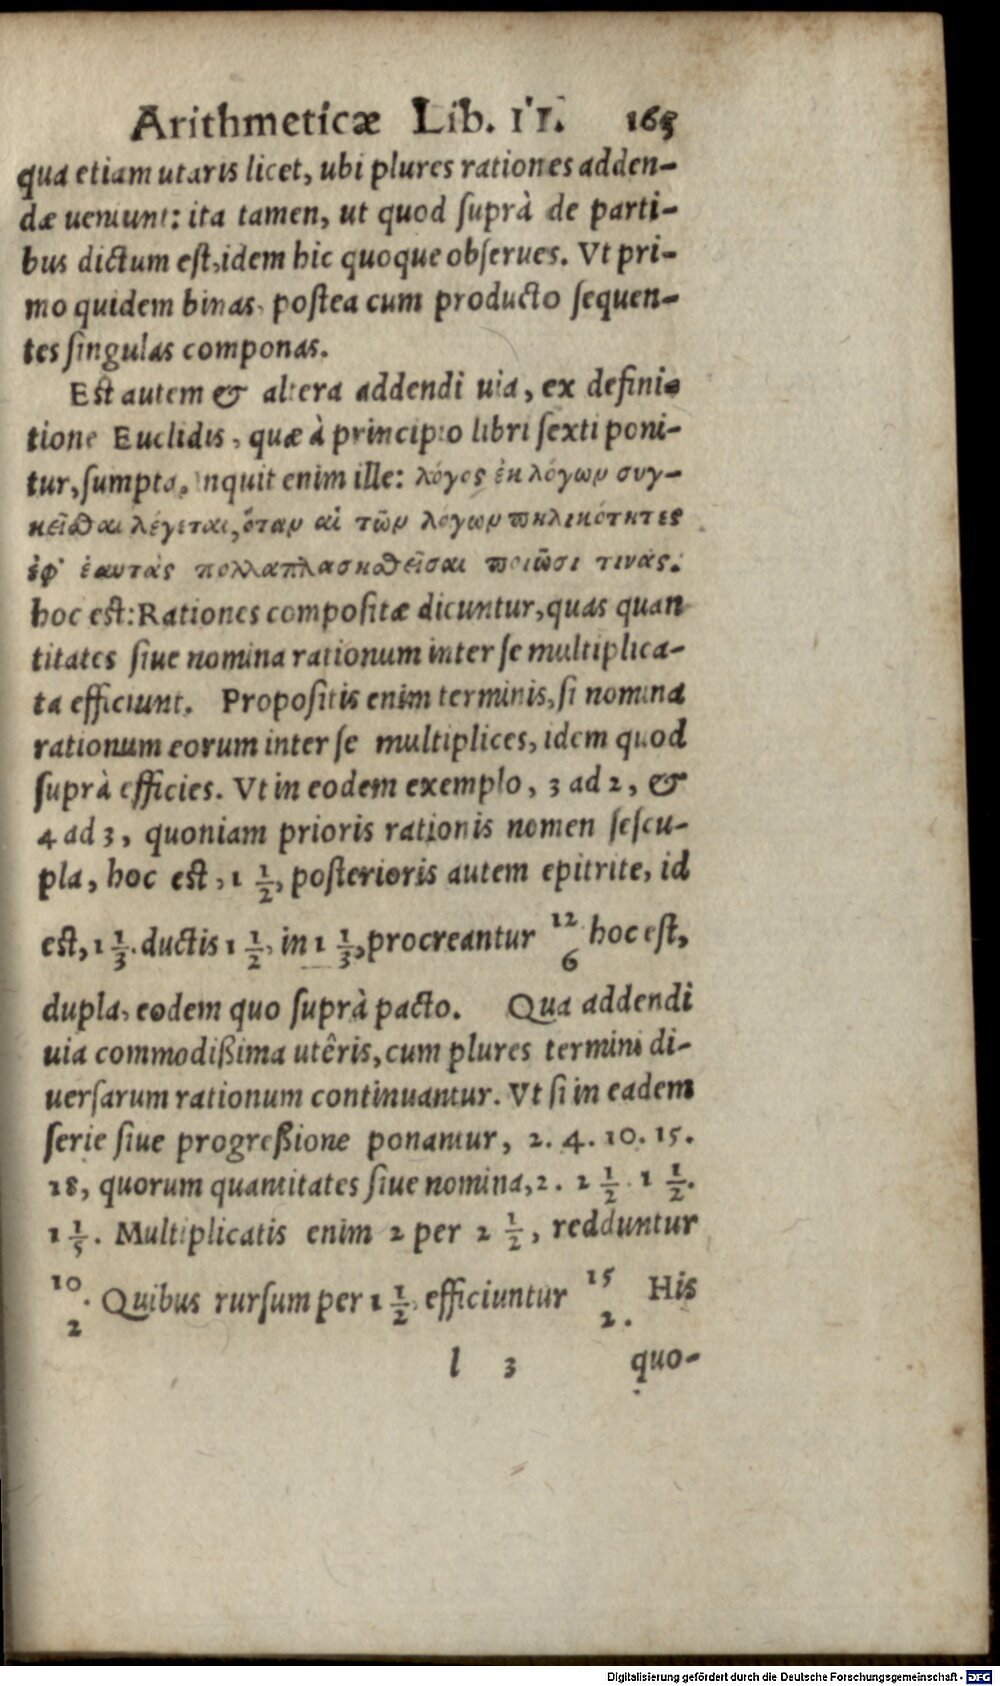 Arithmeticæ Lib. II. 165
qua etiam utaris licet, ubi plures rationes adden-
dæ ueniunt: ita tamen, ut quod ſuprà de parti-
bus dictum eſt, idem hic quoque obſerues. Vt pri-
mo quidem binas, poſtea cum producto ſequen-
tes ſingulas componas.
Eſt autem & altera addendi uia, ex defini-
tione Euclidis, quæ à principio libri ſexti poni-
tur, ſumpta. Inquit enim ille: λόγος ἐκ λόγων συγ-
κεῖσθαι λέγεται, ὅταν αἱ τῶν λόγων πηλικότητες
ἐφ' ἑαυτὰς πολλαπλασιασθεῖσαι ποιῶσι τινάς:
hoc eſt: Rationes compoſitæ dicuntur, quas quan
titates ſiue nomina rationum inter ſe multiplica-
ta efficiunt. Propoſitis enim terminis, ſi nomina
rationum eorum inter ſe multiplices, idem quod
ſuprà efficies. Vt in eodem exemplo, 3 ad 2, &
4 ad 3, quoniam prioris rationis nomen ſeſcu-
pla, hoc eſt, 1 1/2, poſterioris autem epitrite, id
eſt, 1 1/3. ductis 1 1/2, in 1 1/3, procreantur 12/6 hoc eſt,
dupla, eodem quo ſuprà pacto. Qua addendi
uia commodißima utêris, cum plures termini di-
uerſarum rationum continuantur. Vt ſi in eadem
ſerie ſiue progreßione ponantur, 2. 4. 10. 15.
18, quorum quantitates ſiue nomina, 2. 2 1/2. 1 1/2.
1 1/5. Multiplicatis enim 2 per 2 1/2, redduntur
10/2. Quibus rurſum per 1 1/2, efficiuntur 15/2. His
l 3 quo-
Digitalisierung gefördert durch die Deutsche Forschungsgemeinschaft - DFG